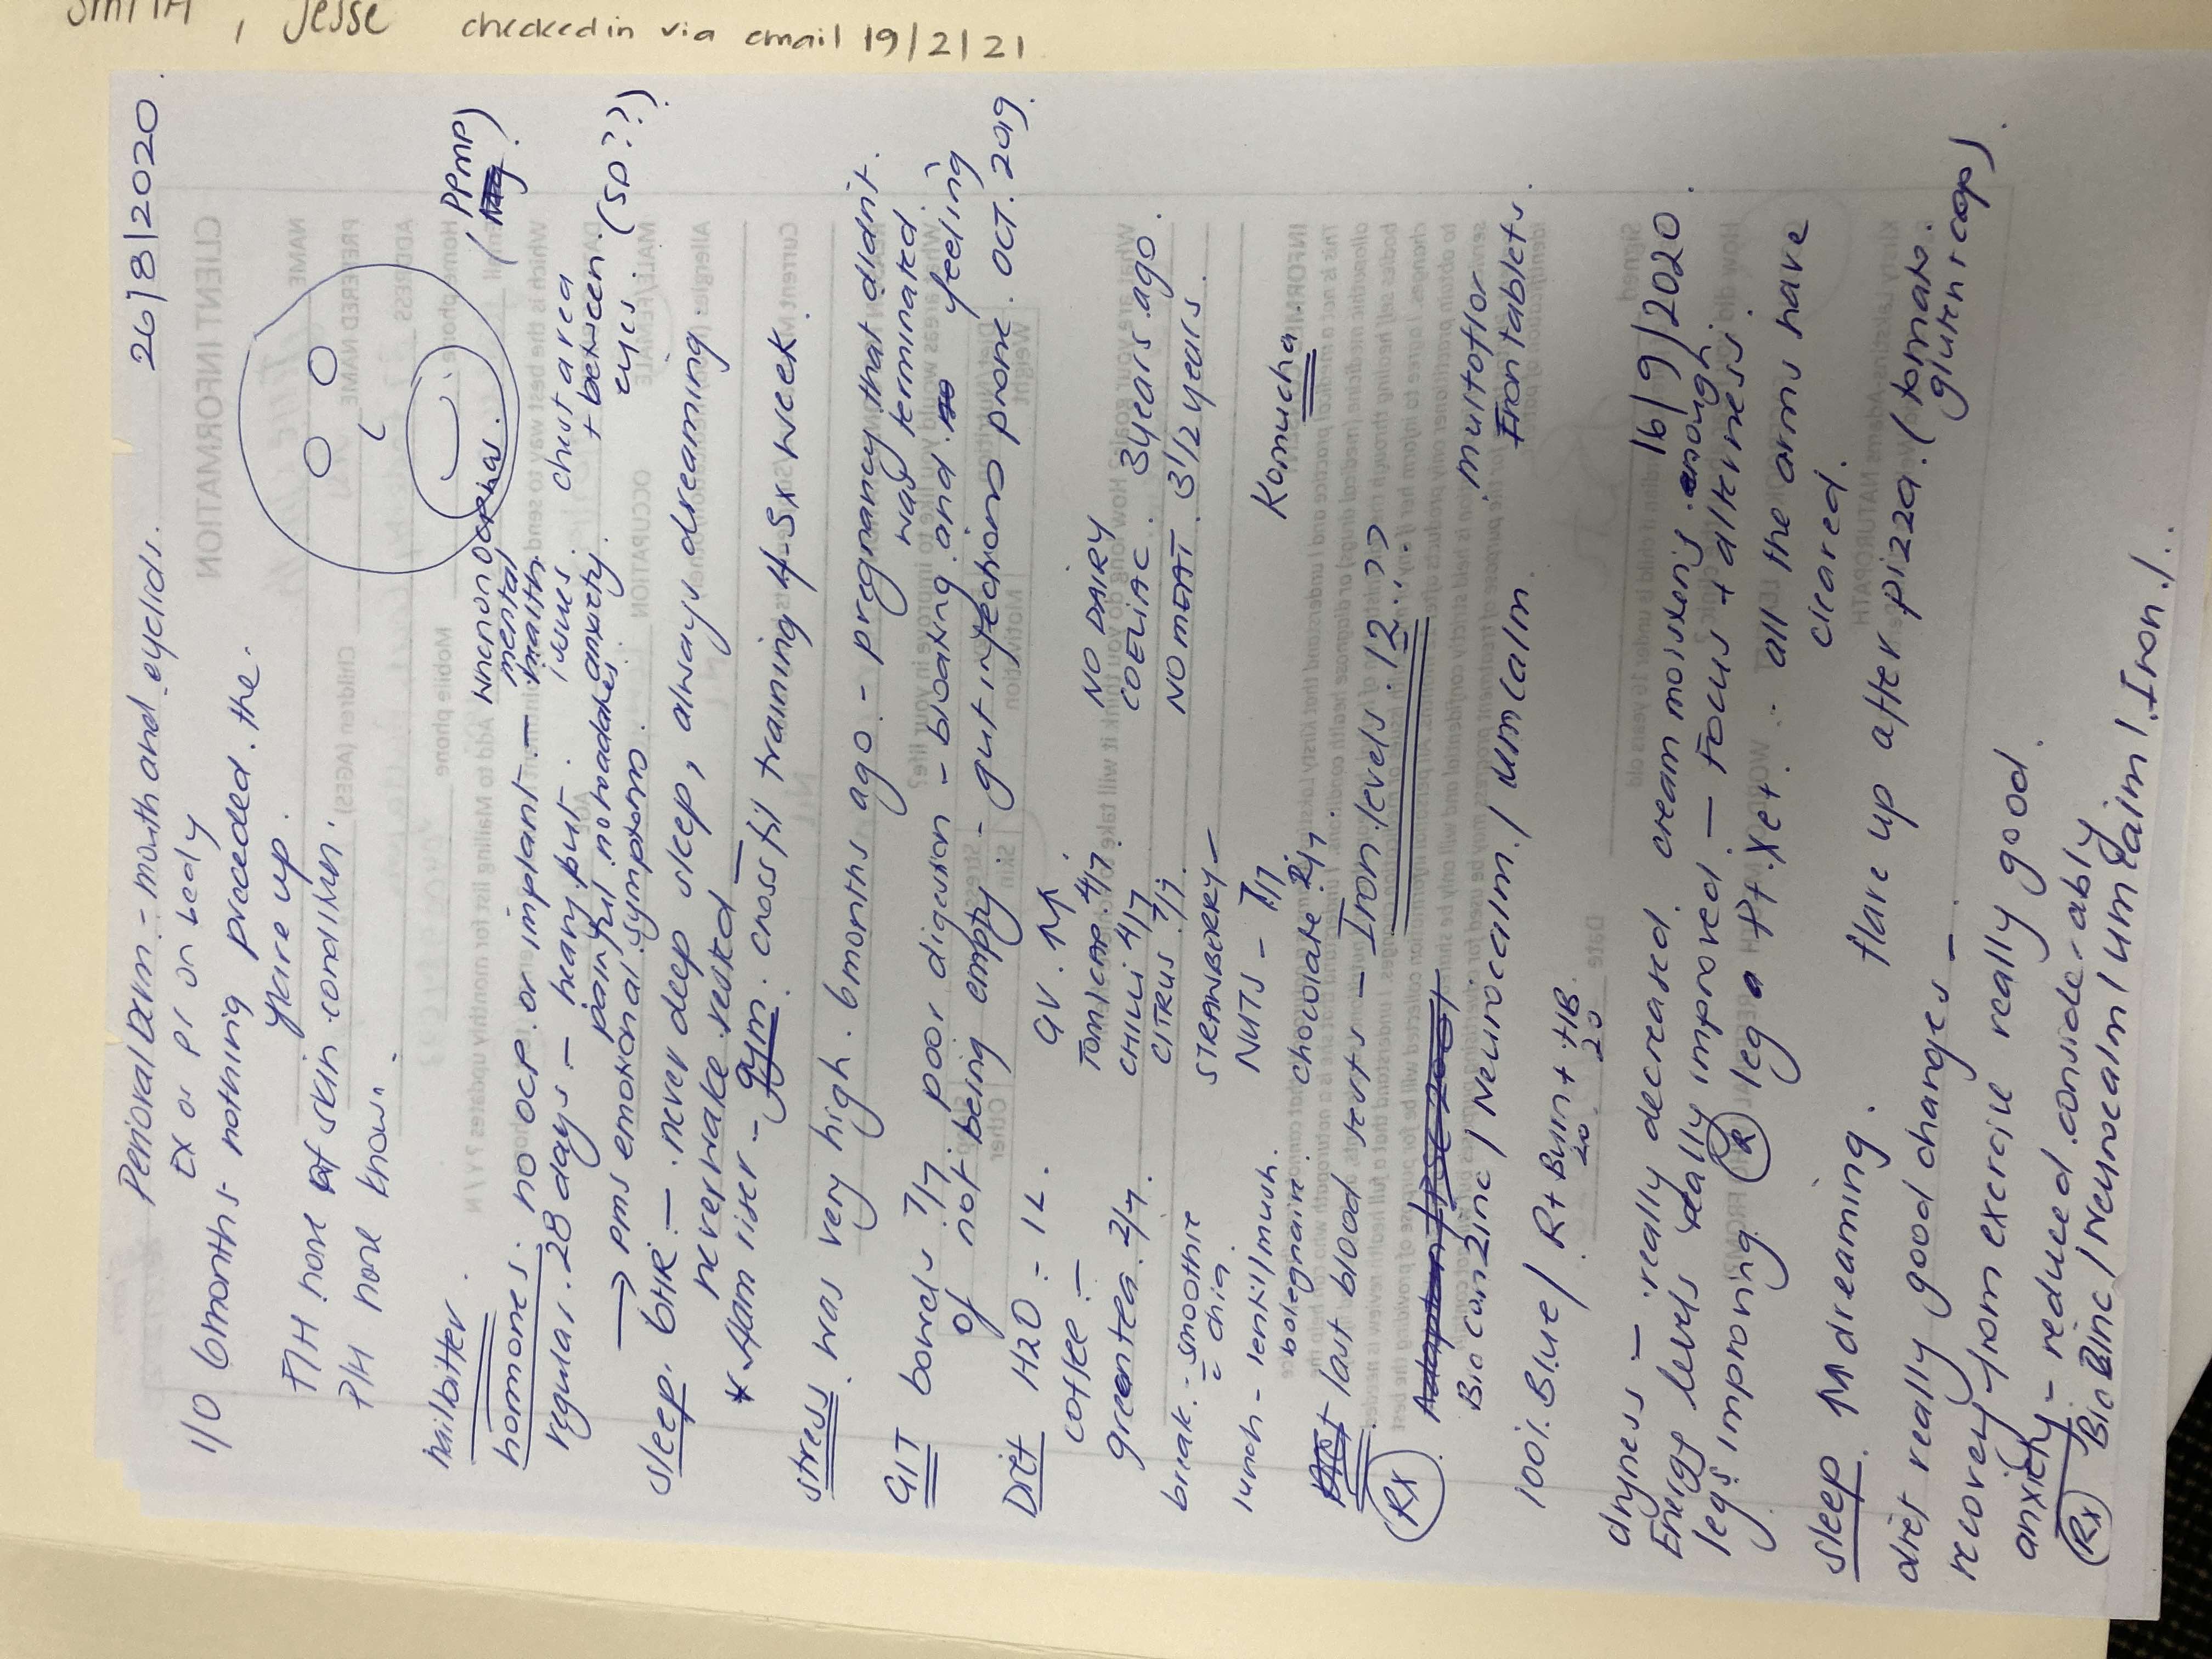 SMITH, Jesse checked in via email 19/2/21
26/8/2020
Perioral Derm - mouth and eyelids.
Ex or Pr on body
1/0 6months - nothing preceeded the
flare up.
F/H none of skin condition.
P/H none known.
nailbitter.
(PPMP)
hormones. no OCP or implant - when on OCP has mental health issues.
chest area + between eyes. (SD??)
regular. 28 days - heavy but painful no headaches anxiety.
→ pms emotional symptoms.
sleep. 6HR - never deep sleep, always dreaming.
never wake rested
* 4am riser - gym. cross fit training 4-5x week.
stress was very high. 6months ago - pregnancy that didn't.
was terminated.
GIT bowels 7/7. poor digestion - bloating and feeling
of not being empty - gut infections prone. OCT. 2019.
Diet H2O - 1L.
coffee -
greentea. 2/7.
break. - smoothie
= chia.
lunch - lentil/mush.
bolegnaire.
GV. M↑
TOM/CAP 4/7.
CHILLI 4/7
CITRUS 7/7.
STRAWBERRY -
NUTS - 7/7
chocolate 2/7.
NO DAIRY
COELIAC. 3years ago.
NO MEAT. 3 1/2 years.
Komucha.
last blood tests - Iron levels. 12...??
Rx
Bio can Zinc / Neurocalm. / umm calm. multoflor
Iron tablets.
100%. Blue / Rt Burn + HB.
20. 20
16/9/2020.
dryness - really decreased. cream moistening enough.
Energy levels really improved - Focus + alterness.
legs improving. (R) leg a Pt. Xet. - all the arms have
cleared.
sleep. M dreaming. flare up after pizza. (tomato.
gluten r cap)
diet really good changes -
recovery from exercise really good.
anxiety - reduced considerably
Rx Bio Zinc / Neurocalm / umm calm / Iron /.